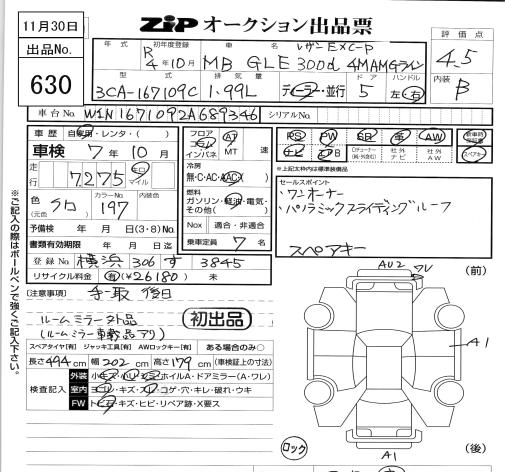 11月30日
ZIP オークション出品票
出品No.
630
年式
初年度登録
R 4年10月
車名
MB GLE 300d 4MAMGライン
レザーEXC-P
評価点
4.5
型式
3CA-167109C
排気量
1.99L
ディーラー・並行
ドア
5
ハンドル
左・右
内装
B
車台No. W1N1671092A689346
シリアルNo.
車歴 自家用・レンタ・( )
車検 7年10月
走行 7275 キロ マイル
色(元色) クロ
カラーNo. 197
内装色
予備検 年 月 日(3・8)No.
書類有効期限 年 月 日迄
登録No. 横浜 306 す 3845
リサイクル料金 有(¥26180) 未
フロア コラム インパネ
AT MT 速
冷房 無・C・AC・AAC
燃料 ガソリン・軽油・電気・その他( )
Nox 適合・非適合
乗車定員 7 名
PS PW SR 革 AW
ナビ
社外ナビ
社外AW
スペアキー
※上記太枠内は標準装備品
セールスポイント
・ワンオーナー
・パノラミックスライディングルーフ
スペアキー
(注意事項)
手取 後日
ルームミラー欠品
(ルームミラー車載品アリ)
初出品
スペアタイヤ[有] ジャッキ工具[有] AWロックキー[有] ある場合のみ○
長さ494cm 幅202cm 高さ179cm (車検証上の寸法)
検査記入
外装
室内 ヨゴレ・キズ・スレ・コゲ・穴・キレ・破れ・ウキ
FW トビ石・キズ・ヒビ・リペア跡・X要ス
※ご記入の際はボールペンで強くご記入下さい。
AU2
(前)
A1
ロック
A1
(後)